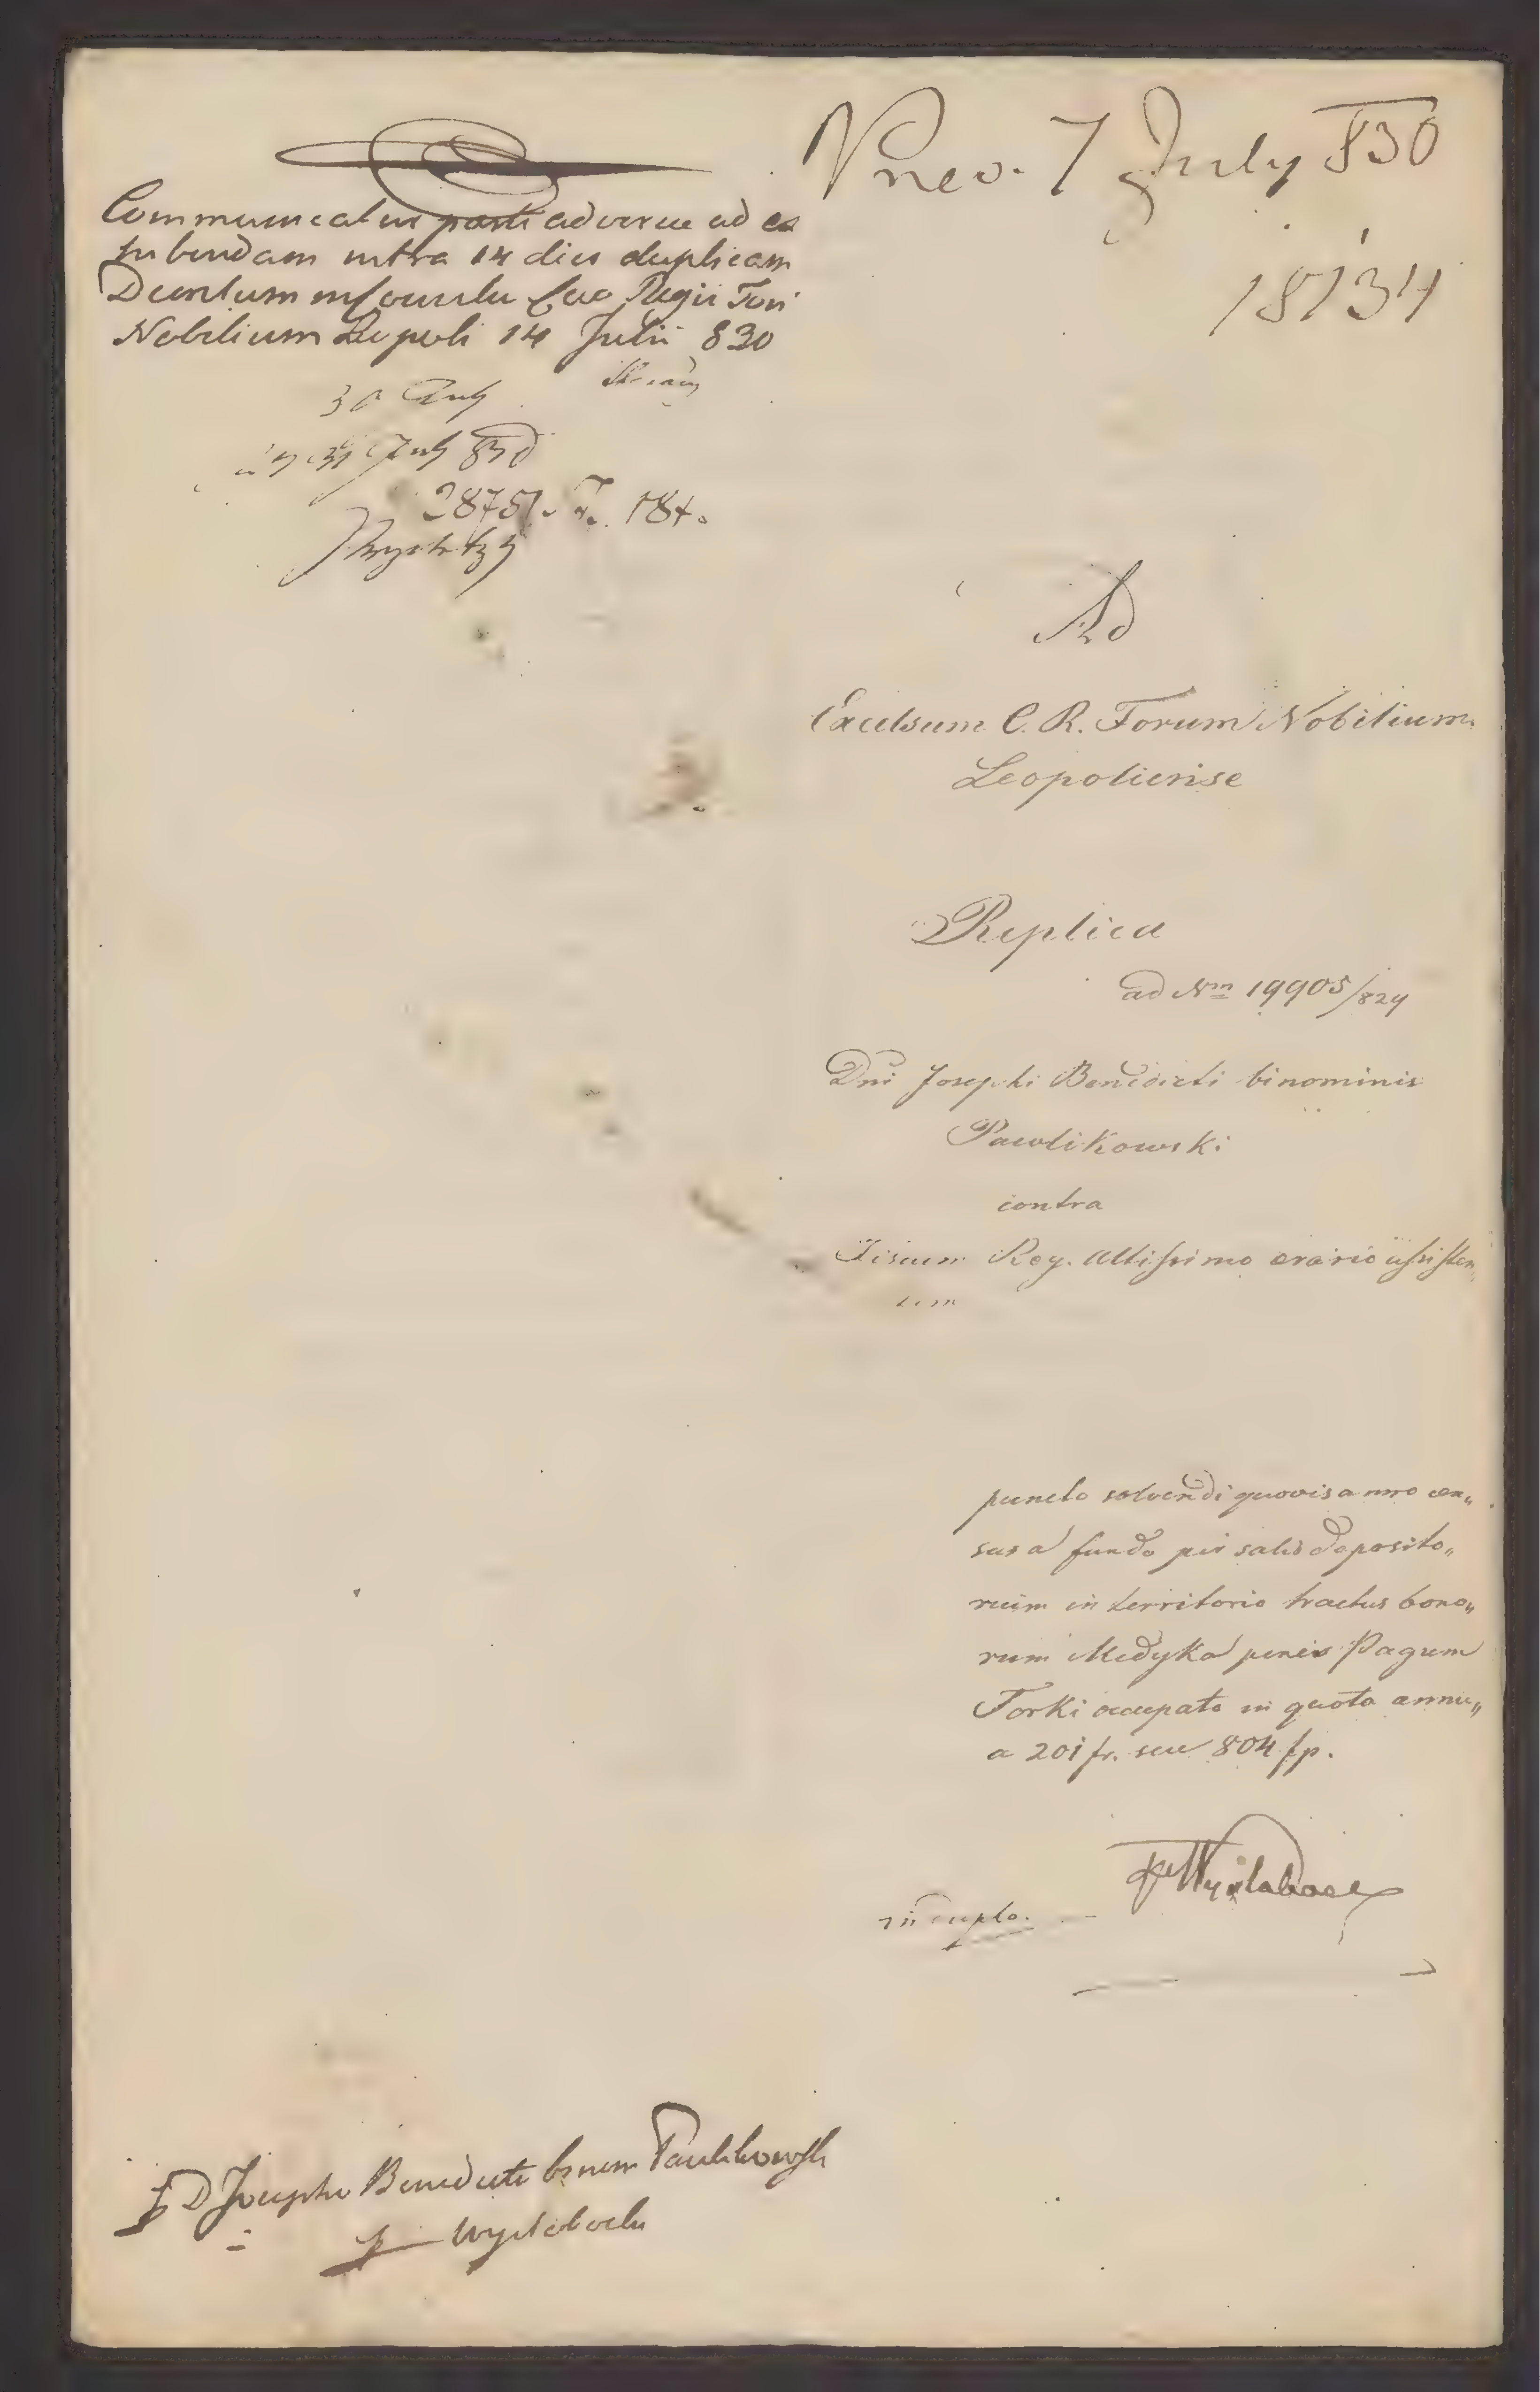 Communicatur parti adversae ad ex
hibendam intra 14 dies duplicam
Decretum in Consilio Caes Regii Fori
Nobilium Leopoli 14 Julii 830
30 July
31 July 830
28751. 184.
Pnes. 7 July 830
18134
Ad
Excelsum C. R. Forum Nobilium
Leopoliense
Replica
ad Nrm 19905/829
Dni Josephi Benedicti binominis
Pawlikowski
contra
Fiscum Reg. Altissimo aerario assisten„
tem
puncto solvendi quovis anno cen„
sus a fundo per salis deposito„
rium in territorio tractus bono„
rum Medyka penes Pagum
Torki occupato in quota annu„
a 201 fr. seu 804 fp.
in duplo.
D Josepho Benedicto binom Pawlikowski
Wysłobocki